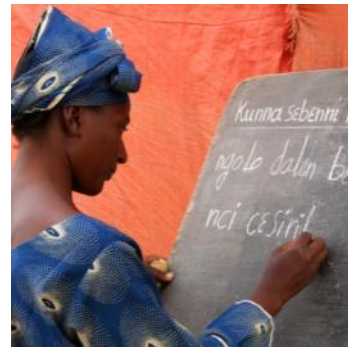 Kunna sebenni
ngolo dalen b
nci cesiri